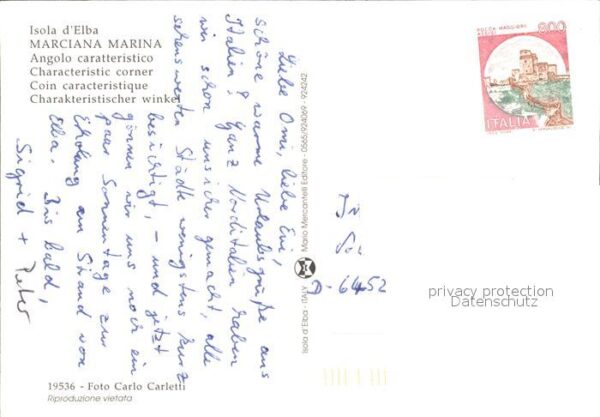 Isola d'Elba
MARCIANA MARINA
Angolo caratteristico
Characteristic corner
Coin caracteristique
Charakteristischer winkel
Liebe Omi, liebe Evi,
schöne warme Urlaubsgrüße aus
Italien! Ganz Norditalien haben
wir schon unsicher gemacht, alle
sehenswerten Städte wenigstens kurz
besichtigt, – und jetzt
gönnen wir uns noch ein
paar Sonnentage zur
Erholung am Strand von
Elba. Bis bald,
Sigrid + Peter
19536 - Foto Carlo Carletti
Riproduzione vietata
Isola d'Elba - ITALY
Mario Mercantelli Editore - 0565/924069 - 924242
ROCCA MAGGIORE
ASSISI
800
ITALIA
D-6452
privacy protection
Datenschutz